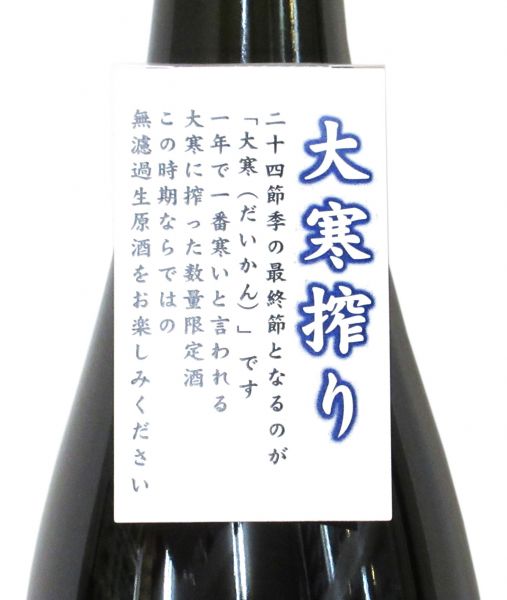 大寒搾り
二十四節季の最終節となるのが
「大寒（だいかん）」です
一年で一番寒いと言われる
大寒に搾った数量限定酒
この時期ならではの
無濾過生原酒をお楽しみください